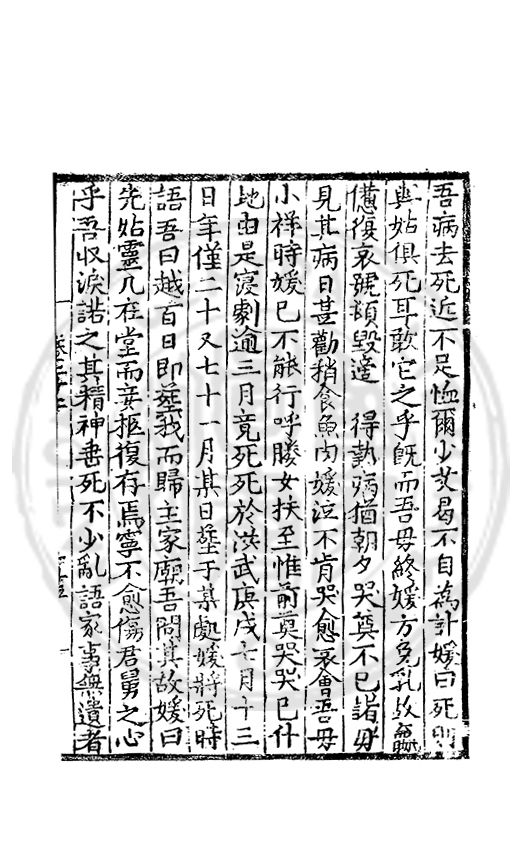 吾病去死近不足恤爾少艾曷不自為計媛曰死則
與姑俱死耳敢它之乎旣而吾母終媛方免乳故羸
憊復哀號頓毀遂得熱病猶朝夕哭奠不已諸毋
見其病日甚勸稍食魚肉媛泣不肯哭愈哀會吾毋
小祥時媛已不能行呼媵女扶至帷前奠哭哭已仆
地由是寖劇逾三月竟死死於洪武庚戌七月十三
日年僅二十又七十一月某日塟于某處媛將死時
語吾曰越百日即塟我而歸主家廟吾問其故媛曰
先姑靈几在堂而妾柩復存焉寧不愈傷君舅之心
乎吾収淚諾之其精神垂死不少亂語家事無遺者